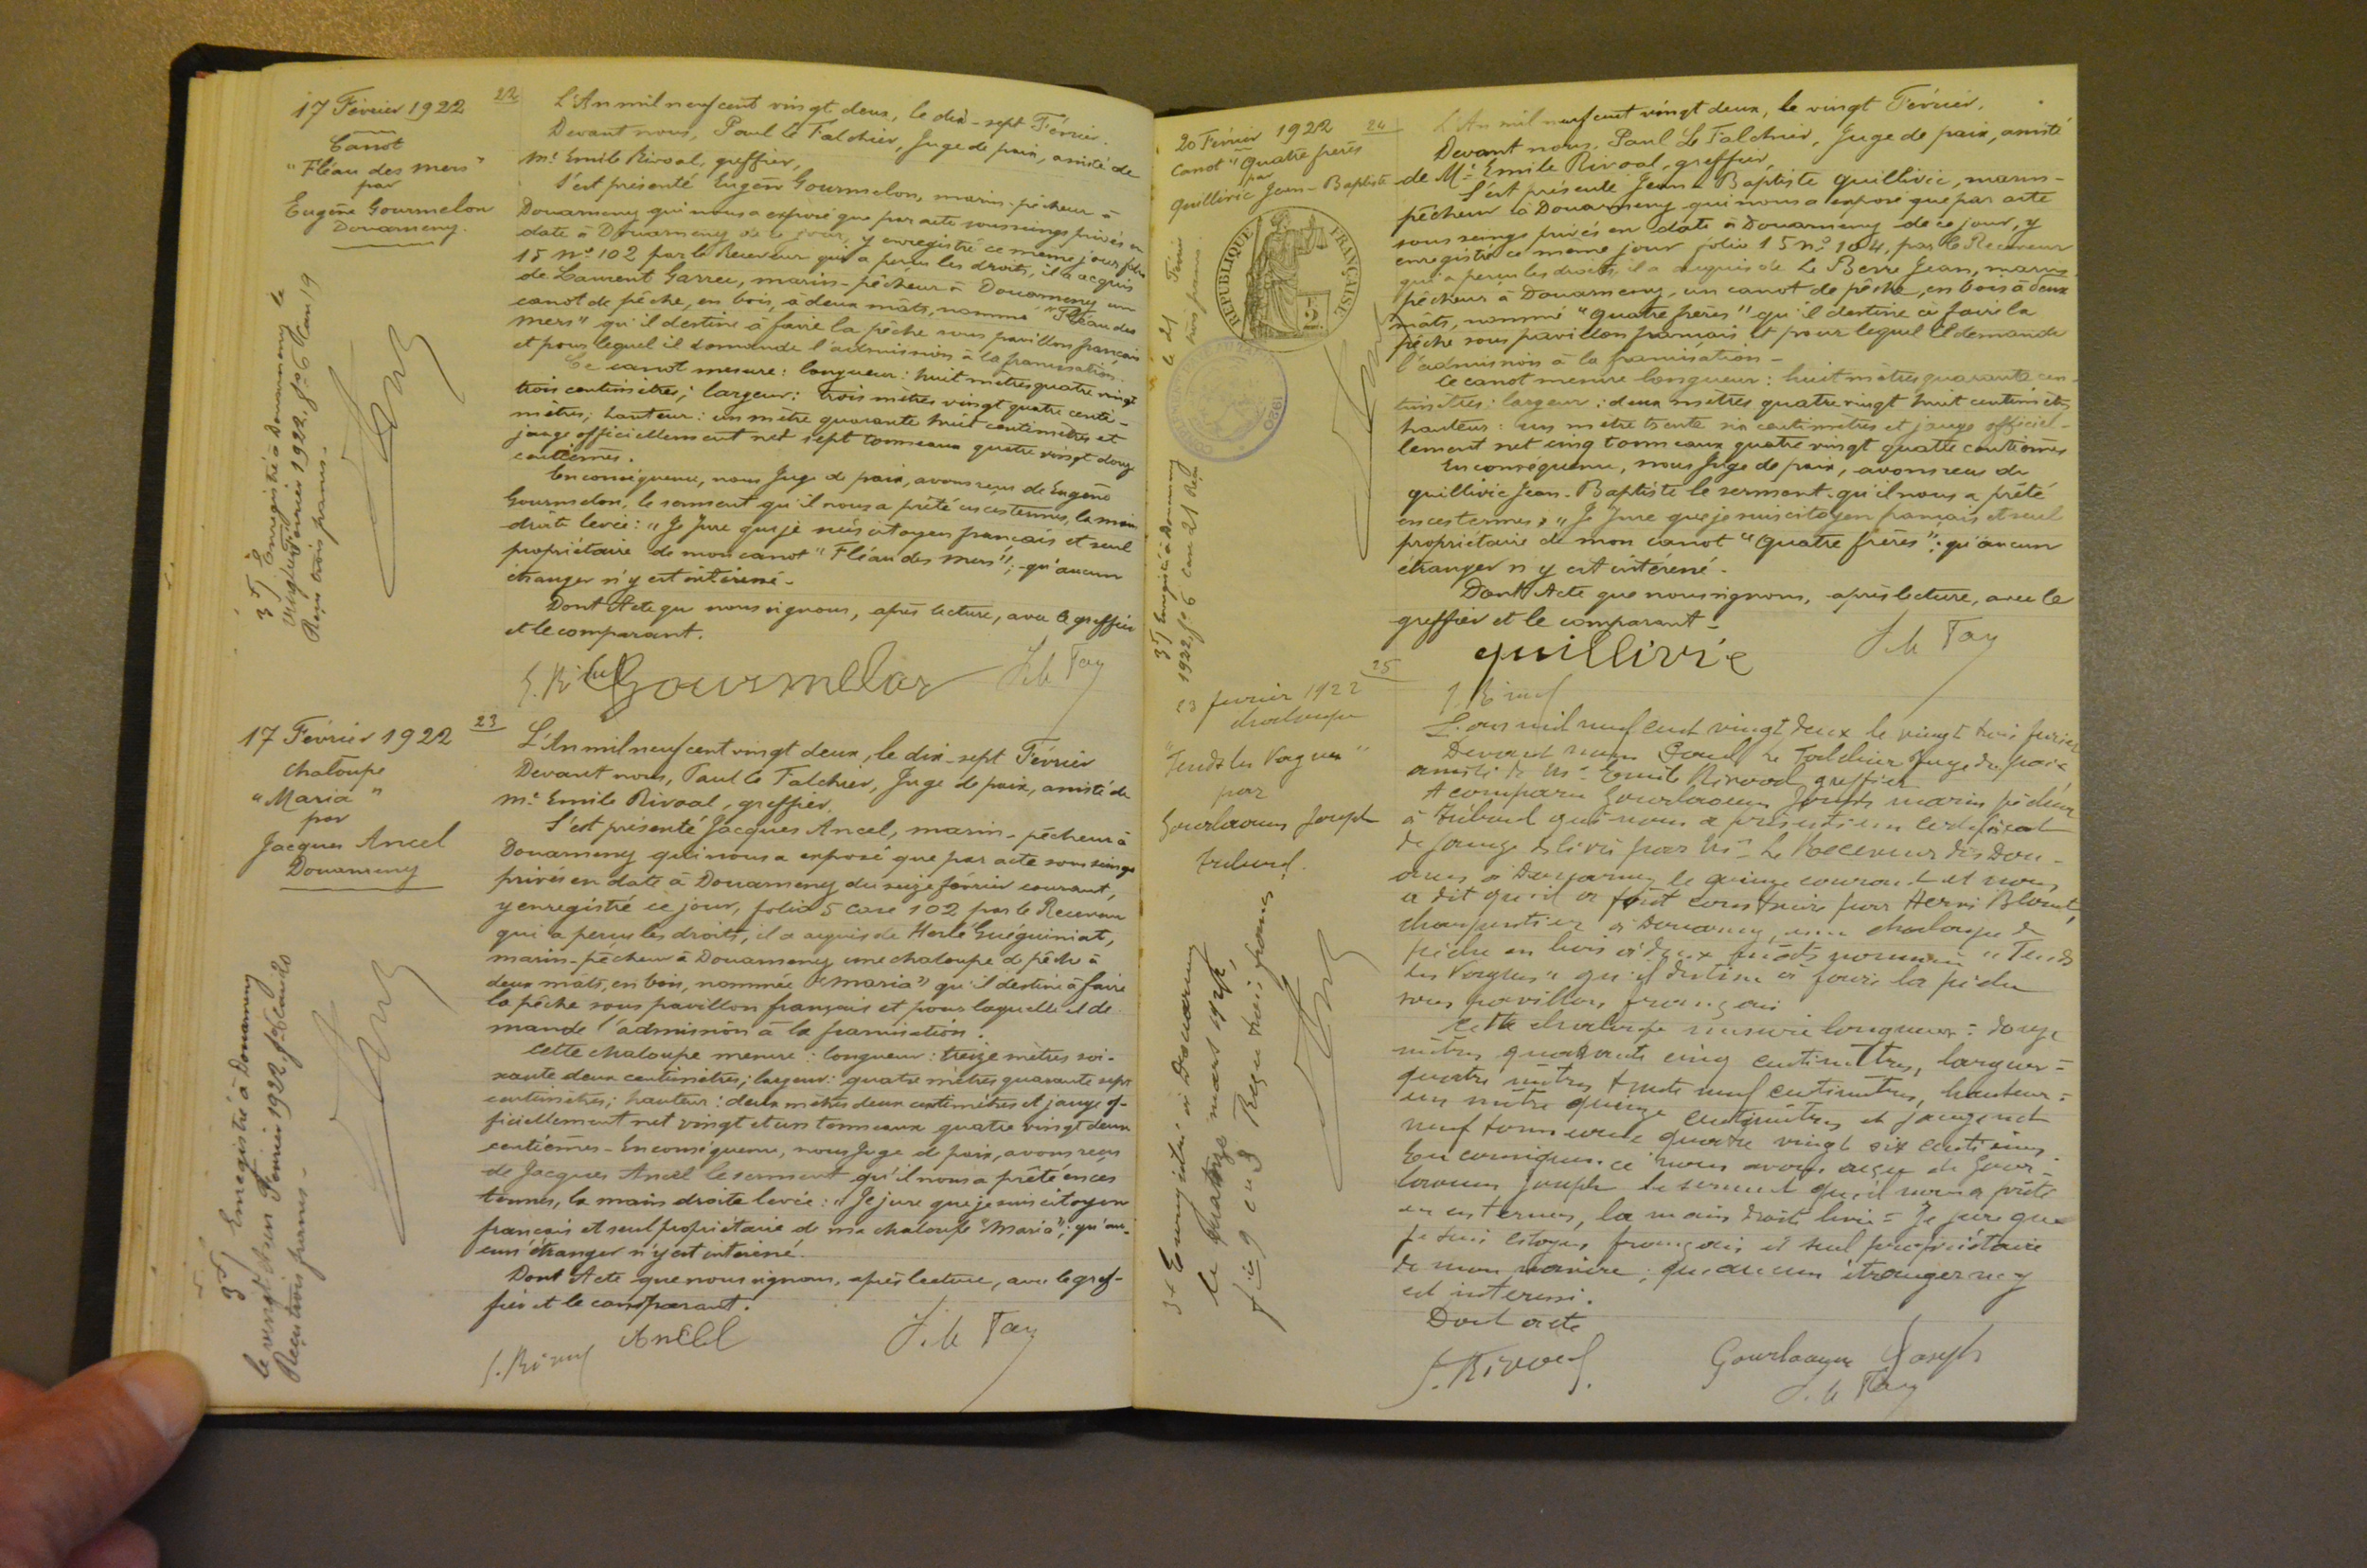 17 Février 1922
Canot
"Fléau des mers"
par
Eugène Gourmelon
Douarnenez.
3f Enregistré à Douarnenez le
vingt Février 1922, f° 6 Case 19
Reçu trois francs.
22
L'An mil neuf cent vingt deux, le dix-sept Février.
Devant nous, Paul Le Falchier, Juge de paix, assisté de
Me Emile Rivoal, greffier,
S'est présenté Eugène Gourmelon, marin-pêcheur à
Douarnenez qui nous a exposé que par acte sous seings privés en
date à Douarnenez de ce jour, y enregistré ce même jour folio
15 No 102 par le Receveur qui a perçu les droits, il a acquis
de Laurent Garrec, marin-pêcheur à Douarnenez un
canot de pêche, en bois, à deux mâts, nommé "Fléau des
mers" qu'il destine à faire la pêche sous pavillon français
et pour lequel il demande l'admission à la francisation.
Ce canot mesure: longueur: huit mètres quatre vingt
trois centimètres; largeur: trois mètres vingt quatre centi-
mètres; hauteur: un mètre quarante huit centimètres et
jauge officiellement net sept tonneaux quatre vingt douze
centièmes.
En conséquence, nous Juge de paix, avons reçu de Eugène
Gourmelon, le serment qu'il nous a prêté en ces termes, la main
droite levée: "Je Jure que je suis citoyen français et seul
propriétaire de mon canot "Fléau des Mers"; qu'aucun
étranger n'y est intéressé-
Dont Acte que nous signons, après lecture, avec le greffier
et le comparant.
Gourmelon
17 Février 1922
Chaloupe
"Maria"
par
Jacques Ancel
Douarnenez
3f Enregistré à Douarnenez
le vingt et un Février 1922, f° 6 Case 20
Reçu trois francs-
23
L'An mil neuf cent vingt deux, le dix-sept Février
Devant nous, Paul Le Falchier, Juge de paix, assisté de
Me Emile Rivoal, greffier.
S'est présenté Jacques Ancel, marin-pêcheur à
Douarnenez qui nous a exposé que par acte sous seings
privés en date à Douarnenez du seize février courant,
y enregistré ce jour, folio 5 Case 102 par le Receveur
qui a perçu les droits, il a acquis de Herlé Guéguiniat,
marin-pêcheur à Douarnenez une chaloupe de pêche à
deux mâts, en bois, nommée "Maria" qu'il destine à faire
la pêche sous pavillon français et pour laquelle il de
mande l'admission à la francisation.
Cette chaloupe mesure: longueur: treize mètres soi-
xante deux centimètres; largeur: quatre mètres quarante sept
centimètres; hauteur: deux mètres deux centimètres et jauge of-
ficiellement net vingt et un tonneaux quatre vingt deux
centièmes- En conséquence, nous Juge de paix, avons reçu
de Jacques Ancel le serment qu'il nous a prêté en ces
termes, la main droite levée: "Je jure que je suis citoyen
français et seul propriétaire de ma chaloupe "Maria"; qu'au-
cun étranger n'y est intéressé.
Dont Acte que nous signons, après lecture, avec le gref-
fier et le comparant.
Ancel
20 Février 1922
Canot "Quatre frères
par
Quillivic Jean-Baptiste
REPUBLIQUE FRANÇAISE
3f Enregistré à Douarnenez le 21 Février
1922, f° 6 Case 21 Reçu trois francs.
24
L'An mil neuf cent vingt deux, le vingt Février.
Devant nous, Paul Le Falchier, Juge de paix, assisté
de Me Emile Rivoal, greffier,
S'est présenté Jean-Baptiste Quillivic, marin-
pêcheur à Douarnenez qui nous a exposé que par acte
sous seings privés en date à Douarnenez de ce jour, y
enregistré ce même jour folio 15 No 104, par le Receveur
qui a perçu les droits, il a acquis de Le Berre Jean, marin
pêcheur à Douarnenez, un canot de pêche, en bois à deux
mâts, nommé "Quatre frères" qu'il destine à faire la
pêche sous pavillon français et pour lequel il demande
l'admission à la francisation-
Ce canot mesure longueur: huit mètres quarante cen-
timètres; largeur: deux mètres quatre vingt huit centimètres
hauteur: un mètre trente six centimètres et jauge officiel-
lement net cinq tonneaux quatre vingt quatre centièmes
En conséquence, nous Juge de paix, avons reçu de
Quillivic Jean-Baptiste le serment qu'il nous a prêté
en ces termes, "Je Jure que je suis citoyen français et seul
propriétaire de mon canot "Quatre frères"; qu'aucun
étranger n'y est intéressé.
Dont Acte que nous signons, après lecture, avec le
greffier et le comparant-
quillivic
23 février 1922
chaloupe
"Fends les Vagues"
par
Gourlaouen Joseph
Tréboul.
3f Enregistré à Douarnenez
le quatorze mars 1922,
f° 9 Case 3 Reçu trois francs
25
L'an mil neuf cent vingt deux le vingt trois février
Devant nous Paul Le Falchier Juge de paix
assisté de Me Emile Rivoal greffier
A comparu Gourlaouen Joseph marin pêcheur
à Tréboul qui nous a présenté un certificat
de jauge délivré par Mr Le Receveur des Dou-
anes à Douarnenez le quinze courant et nous
a dit qu'il a fait construire par Henri Blouet,
charpentier à Douarnenez, une chaloupe de
pêche en bois à deux mâts nommée "Fends
les Vagues" qu'il destine à faire la pêche
sous pavillon français
Cette chaloupe mesure longueur: douze
mètres quarante cinq centimètres, largeur=
quatre mètres trente neuf centimètres, hauteur=
un mètre quinze centimètres et jauge net
neuf tonneaux quatre vingt six centièmes.
En conséquence nous avons reçu de Gour-
laouen Joseph le serment qu'il nous a prêté
en ces termes, la main droite levée= Je jure que
je suis citoyen français et seul propriétaire
de mon navire; qu'aucun étranger n'y
est intéressé.
Dont acte
E. Rivoal
Gourlaouen Joseph